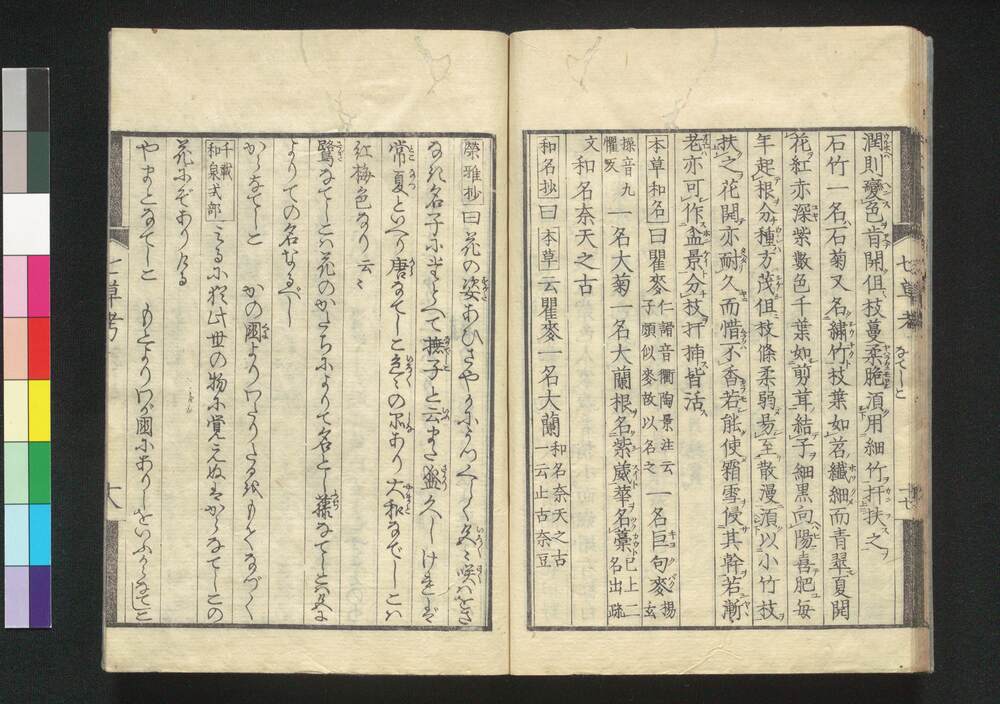 潤則變色肯開但枝蔓柔脆湏用細竹扞扶之
石竹一名石菊又名繡竹枝葉如苕纖細而青翠夏開
花紅亦深紫數色千葉如剪茸結子細黒向陽喜肥毎
年起根分種方茂但枝條柔弱易至散漫湏以小竹枝
扶之花開亦耐久而惜不香若能使霜雪侵其幹若漸
老亦可作盆景分枝扞揷皆活
本草和名曰瞿麥仁諝音衢陶景注云子頗似麥故以名之一名巨句麥楊玄
操音九懼反一名大菊一名大蘭根名紫葳華名藁已上二名出疏
文和名奈天之古
和名抄曰本草云瞿麥一名大蘭和名奈天之古一云止古奈豆
七草考
なでしこ
十七
榮雅抄曰花の姿あひさやかにうつくしく色々に咲バをさ
なき名子によそへて撫子と云また盛久しけれバ
常夏といへり唐なでしこ色々の品あり大和なでしこハ
紅梅色なり云々
鷺なでしこハ花のかたちによりて名とし藤なでしこハ色に
よりての名なるべし
からなでしこ かの國よりわたりたるをもてなづく
千載和泉式部
みるに猶此世の物に覚えぬハからなでしこの
花にぞありける
やまとなでしこ もとよりわが國にありしをいふからなでしこ
七草考
十八